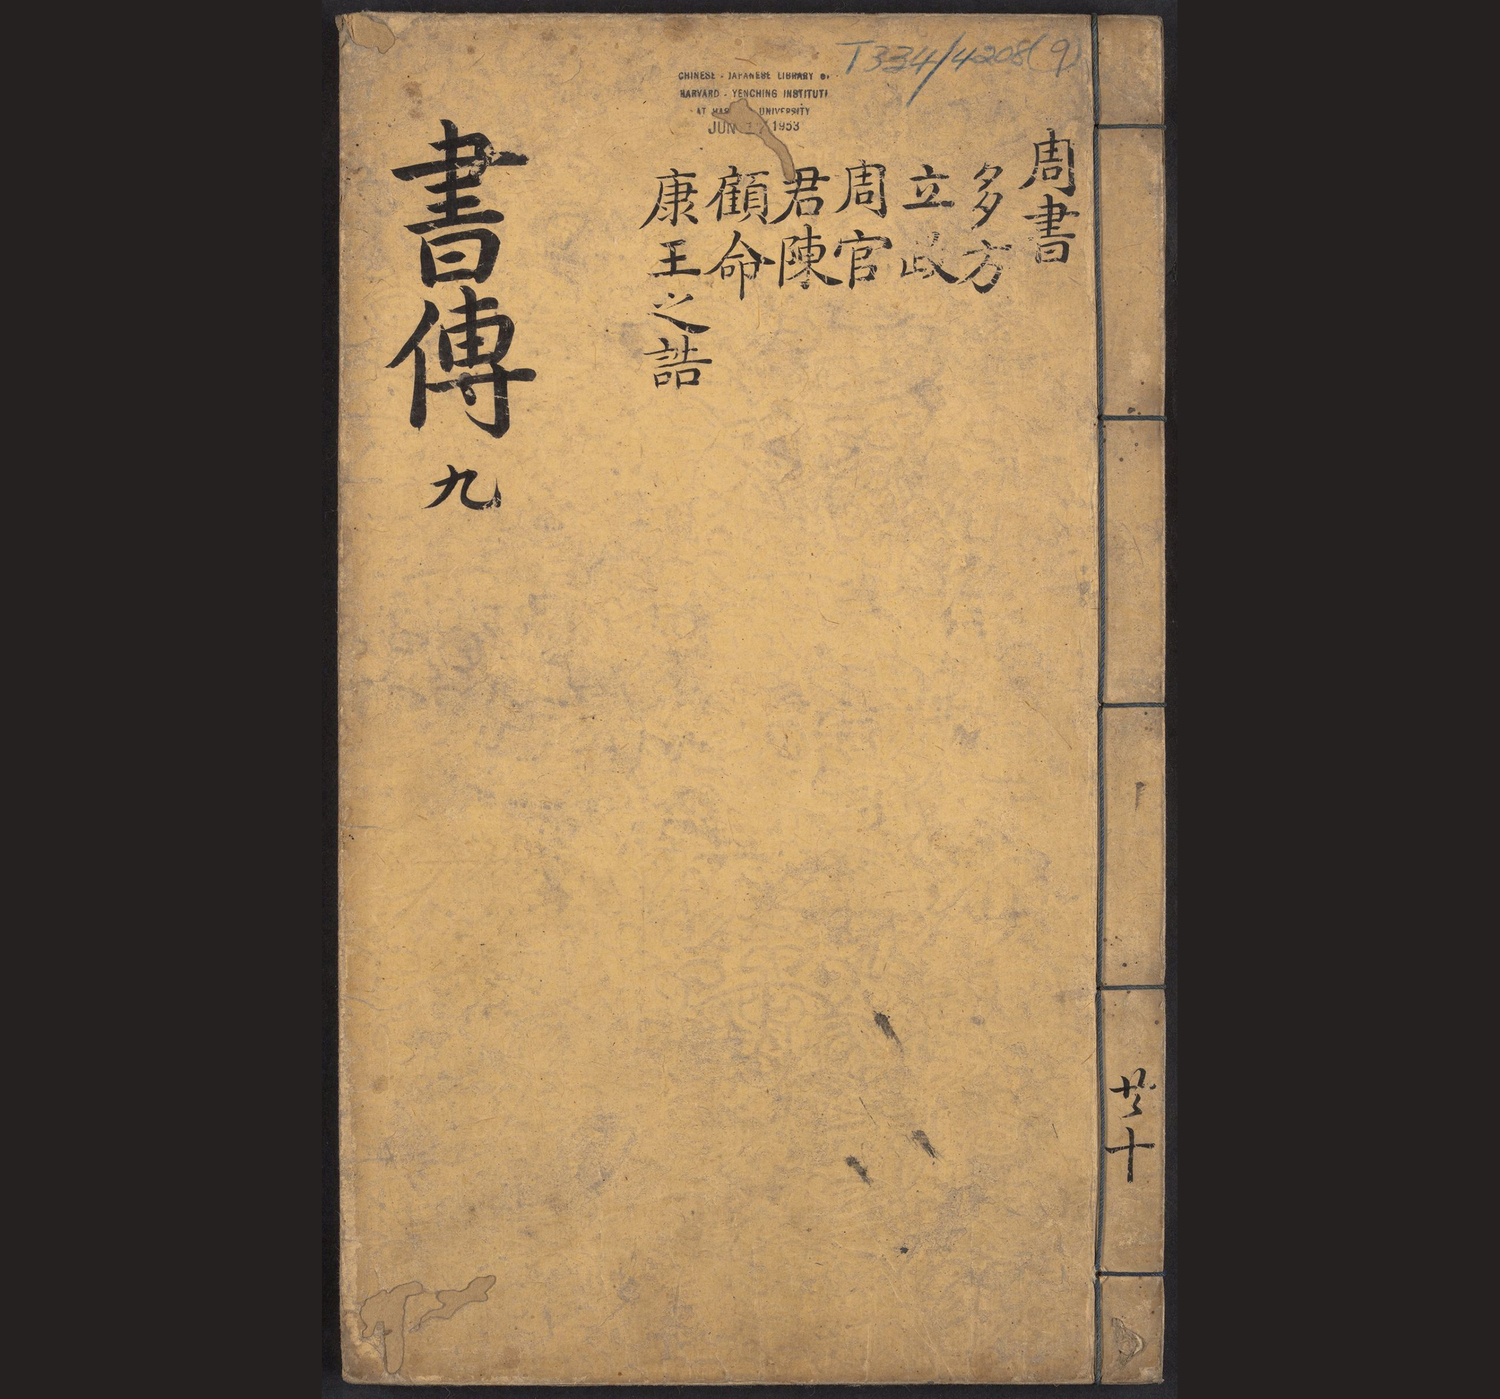 T334/4208(9)
CHINESE - JAPANESE LIBRARY OF
HARVARD - YENCHING INSTITUTE
AT HARVARD UNIVERSITY
JUN 1953
周書
多方
立政
周官
君陳
顧命
康王之誥
書傳 九
共十